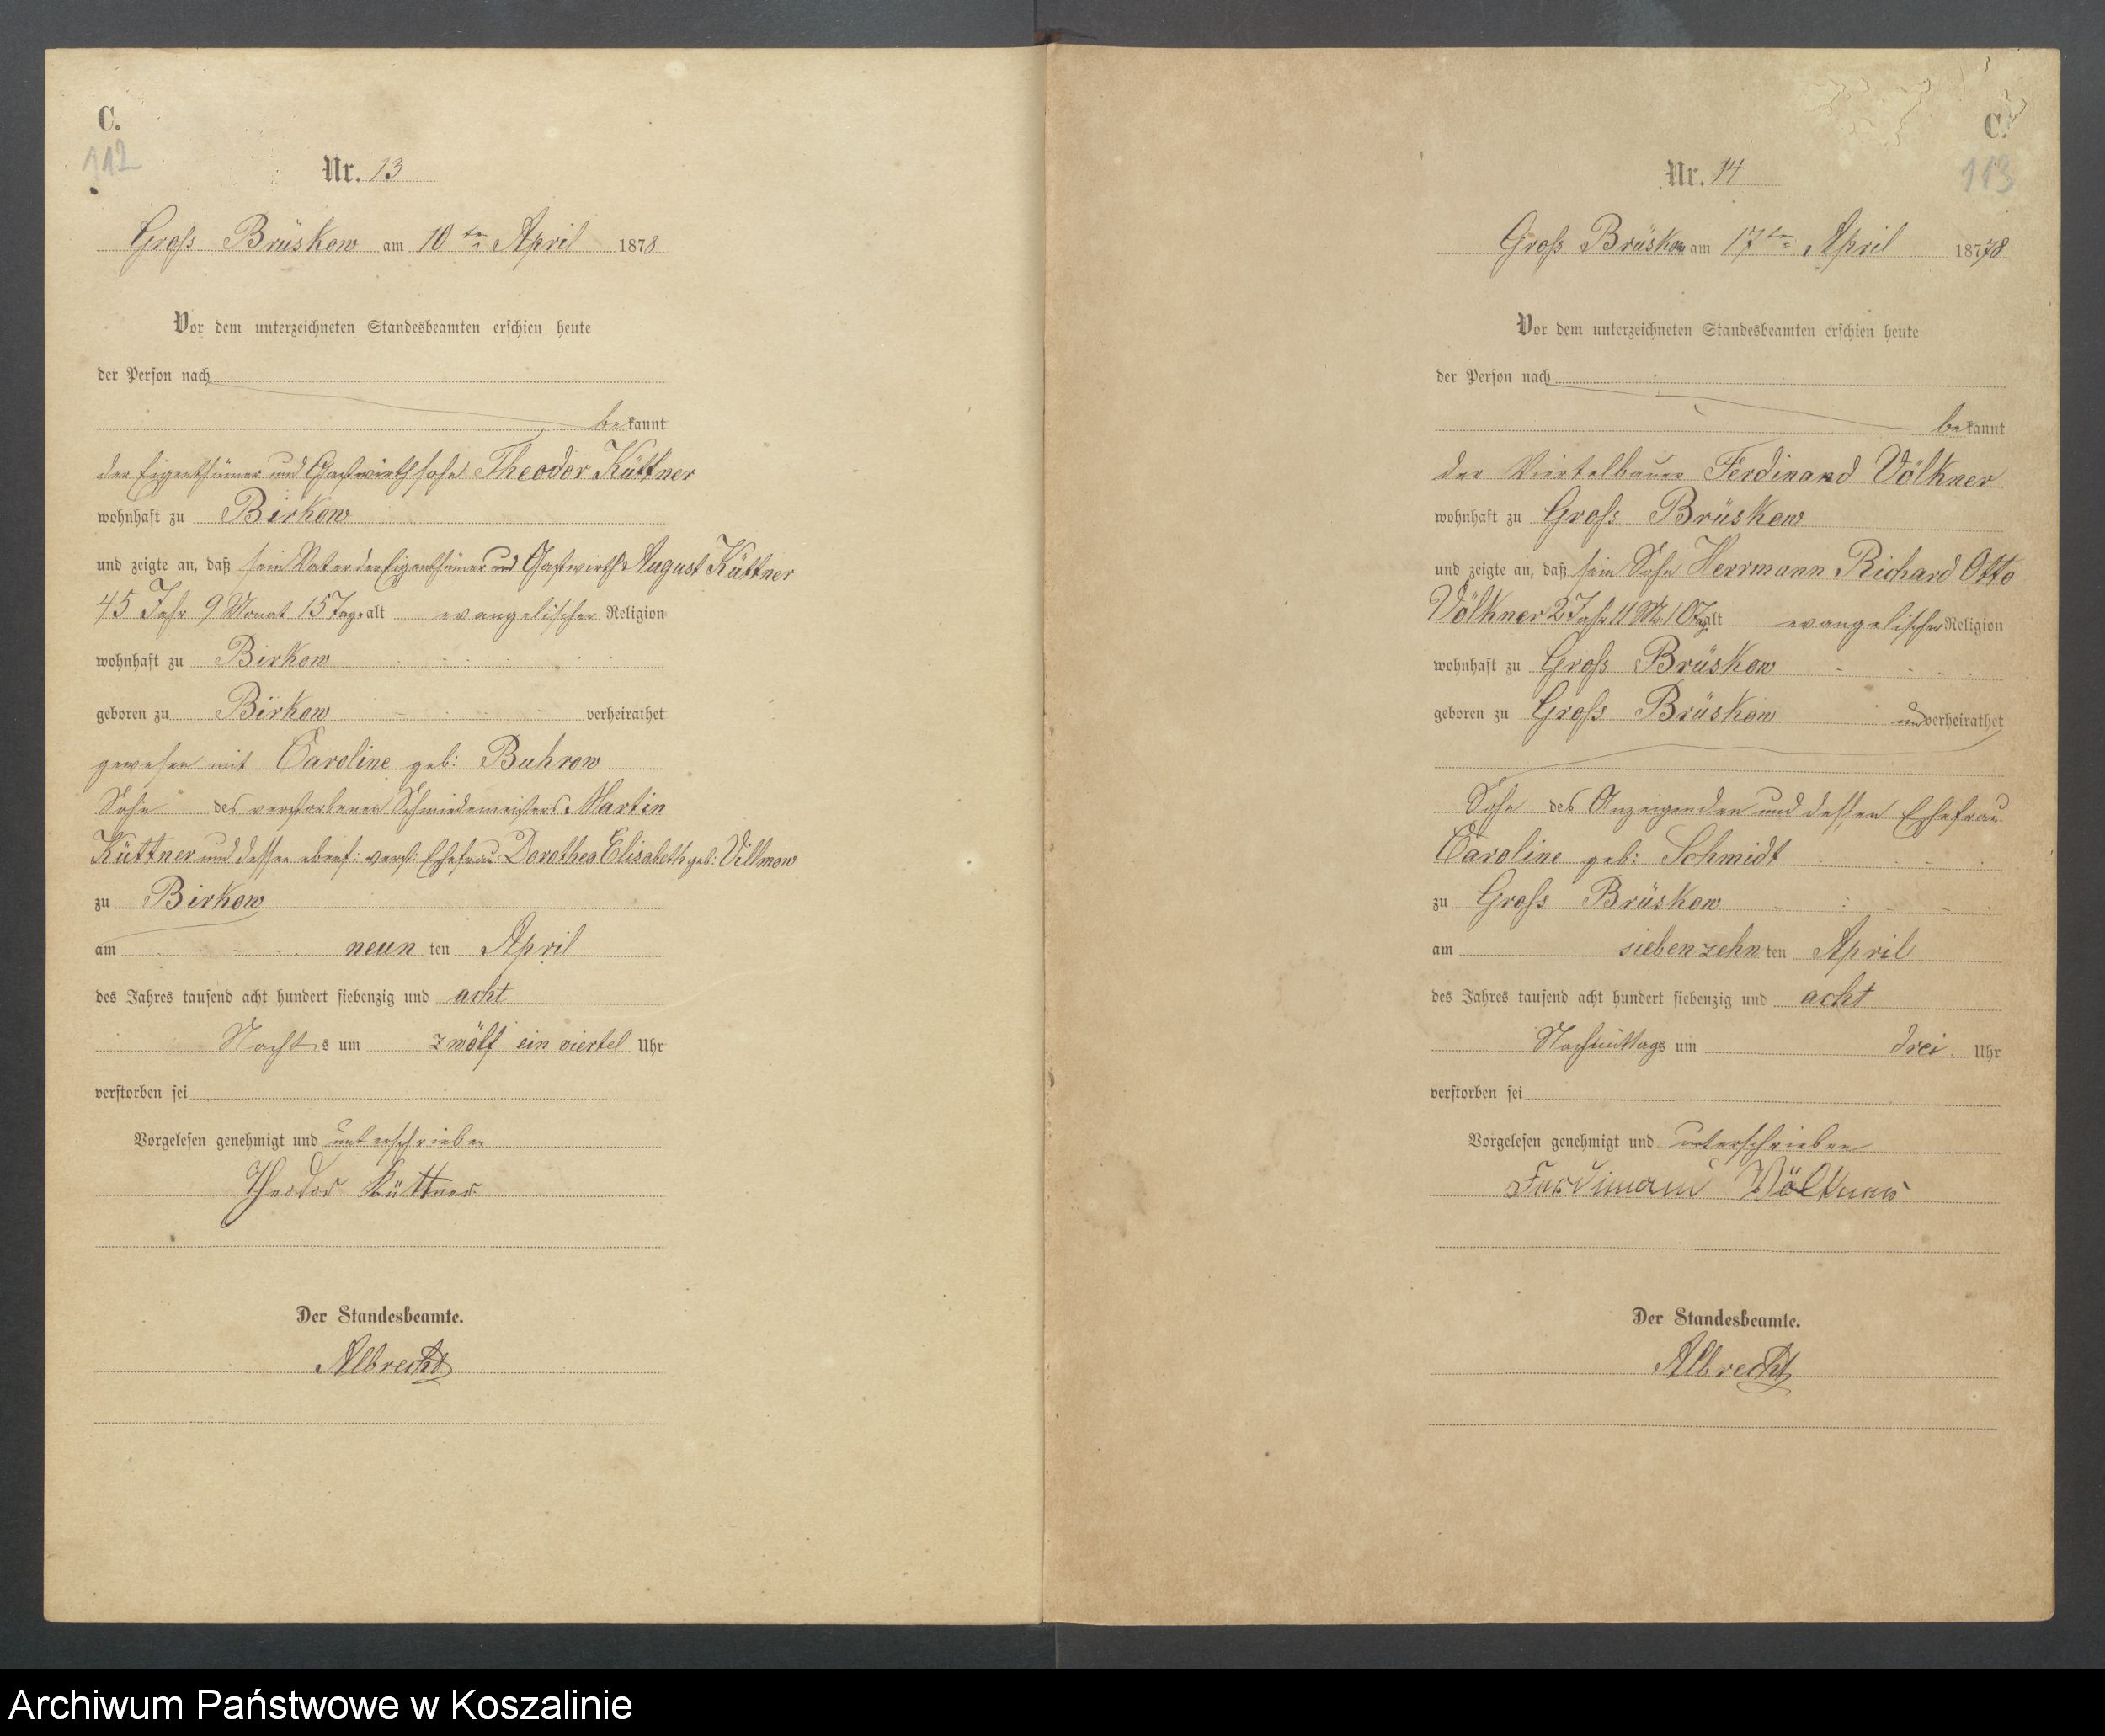 C.
112
Nr. 13
Gross Brüskow am 10ten April 1878
Vor dem unterzeichneten Standesbeamten erschien heute
der Person nach
bekannt
der Eigenthümer und Gastwirthssohn Theodor Küttner
wohnhaft zu Birkow
und zeigte an, daß sein Vater der Eigenthümer und Gastwirth August Küttner
45 Jahr 9 Monat 15 Tage alt evangelischer Religion
wohnhaft zu Birkow
geboren zu Birkow verheirathet
gewesen mit Caroline geb: Buhrow
Sohn des verstorbenen Schmiedemeisters Martin
Küttner und dessen ebenf: verst: Ehefrau Dorothea Elisabeth geb: Villmow
zu Birkow
am neun ten April
des Jahres tausend acht hundert siebenzig und acht
Nachts um zwölf ein viertel Uhr
verstorben sei
Vorgelesen genehmigt und unterschrieben
Theodor Küttner
Der Standesbeamte.
Albrecht
C.
113
Nr. 14
Gross Brüskow am 17ten April 1878
Vor dem unterzeichneten Standesbeamten erschien heute
der Person nach
bekannt
der Viertelbauer Ferdinand Völkner
wohnhaft zu Gross Brüskow
und zeigte an, daß sein Sohn Herrmann Richard Otto
Völkner 2 Jahr 11 Mt 10 Tg alt evangelischer Religion
wohnhaft zu Gross Brüskow
geboren zu Gross Brüskow unverheirathet
Sohn des Anzeigenden und dessen Ehefrau
Caroline geb: Schmidt
zu Gross Brüskow
am siebenzehn ten April
des Jahres tausend acht hundert siebenzig und acht
Nachmittags um drei Uhr
verstorben sei
Vorgelesen genehmigt und unterschrieben
Ferdinand Völkner
Der Standesbeamte.
Albrecht
Archiwum Państwowe w Koszalinie